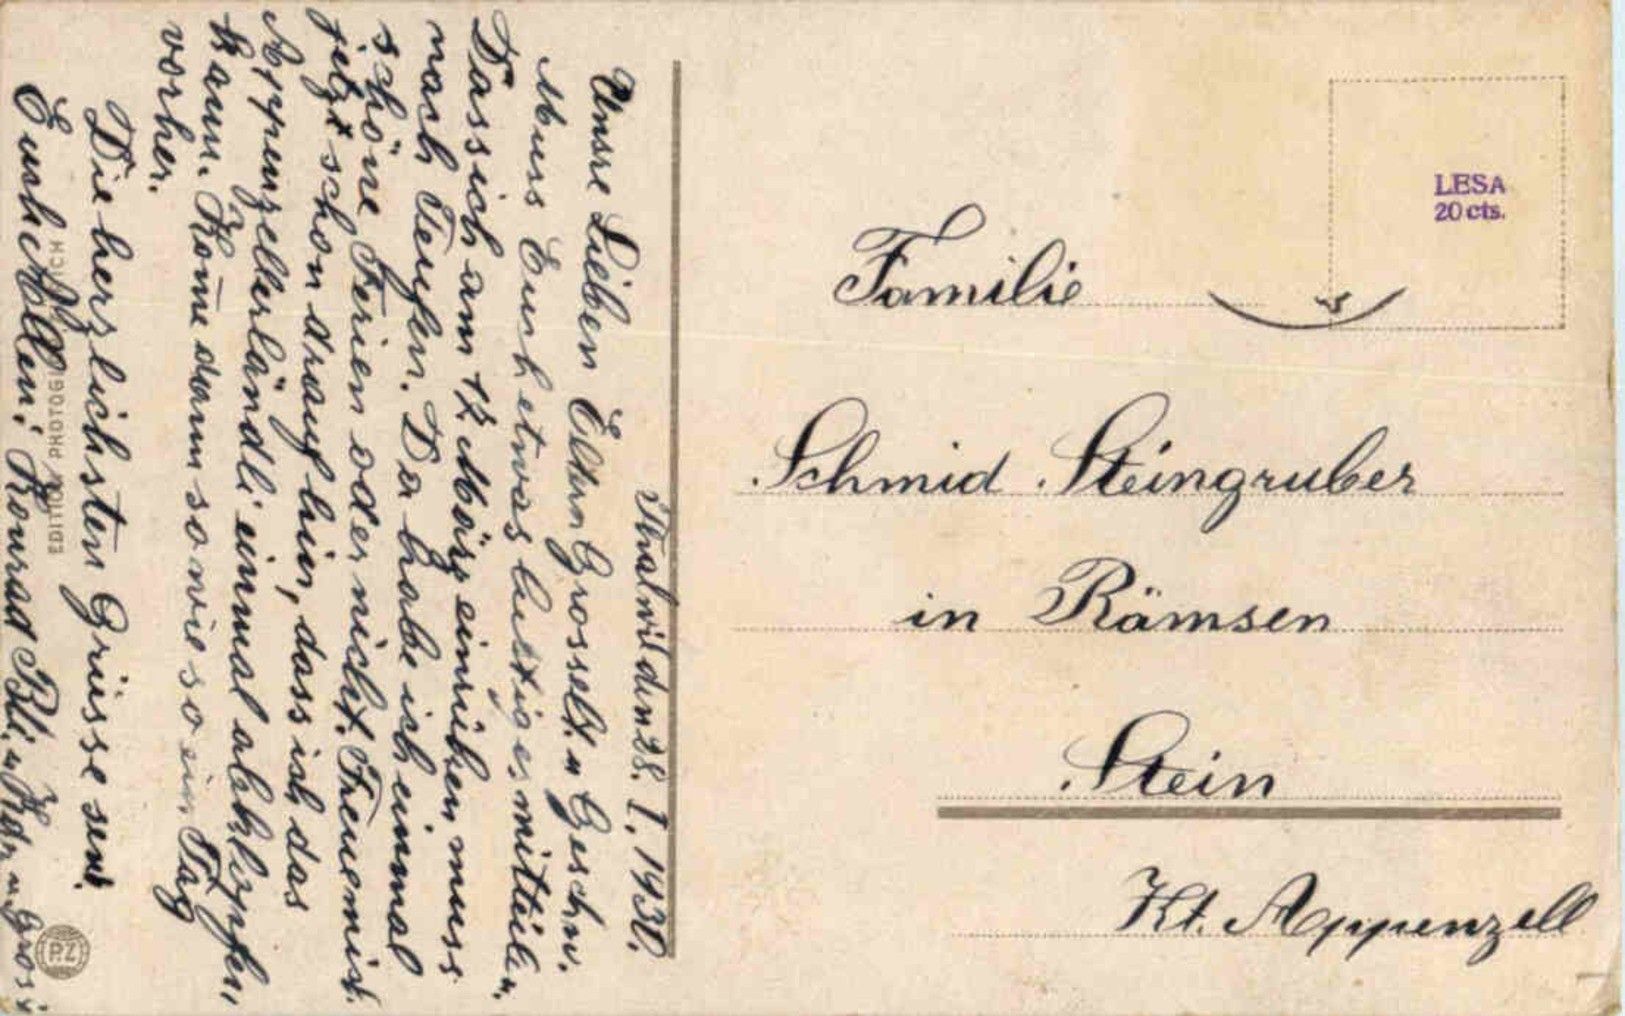 Thalwil den 28. I. 1930.
Unsre Lieben Eltern Grosselt. u Geschw.
Muss Euch etwas lustiges mitteilen,
Dass ich am 12. März einrüken muss
nach Teufen. Da habe ich einmal
schöne Ferien oder nicht. Freue mich
jetzt schon drauf hin, dass ich das
Appenzellerländli einmal abklopfen,
kann. Kome dann so wie so ein Tag
vorher.
Die herzlichsten Grüsse sent.
Euch Allen: Konrad
EDITION PHOTOG
PZ
LESA
20 cts.
Familie
Schmid Steingruber
in Rämsen
Stein
Kt. Appenzell